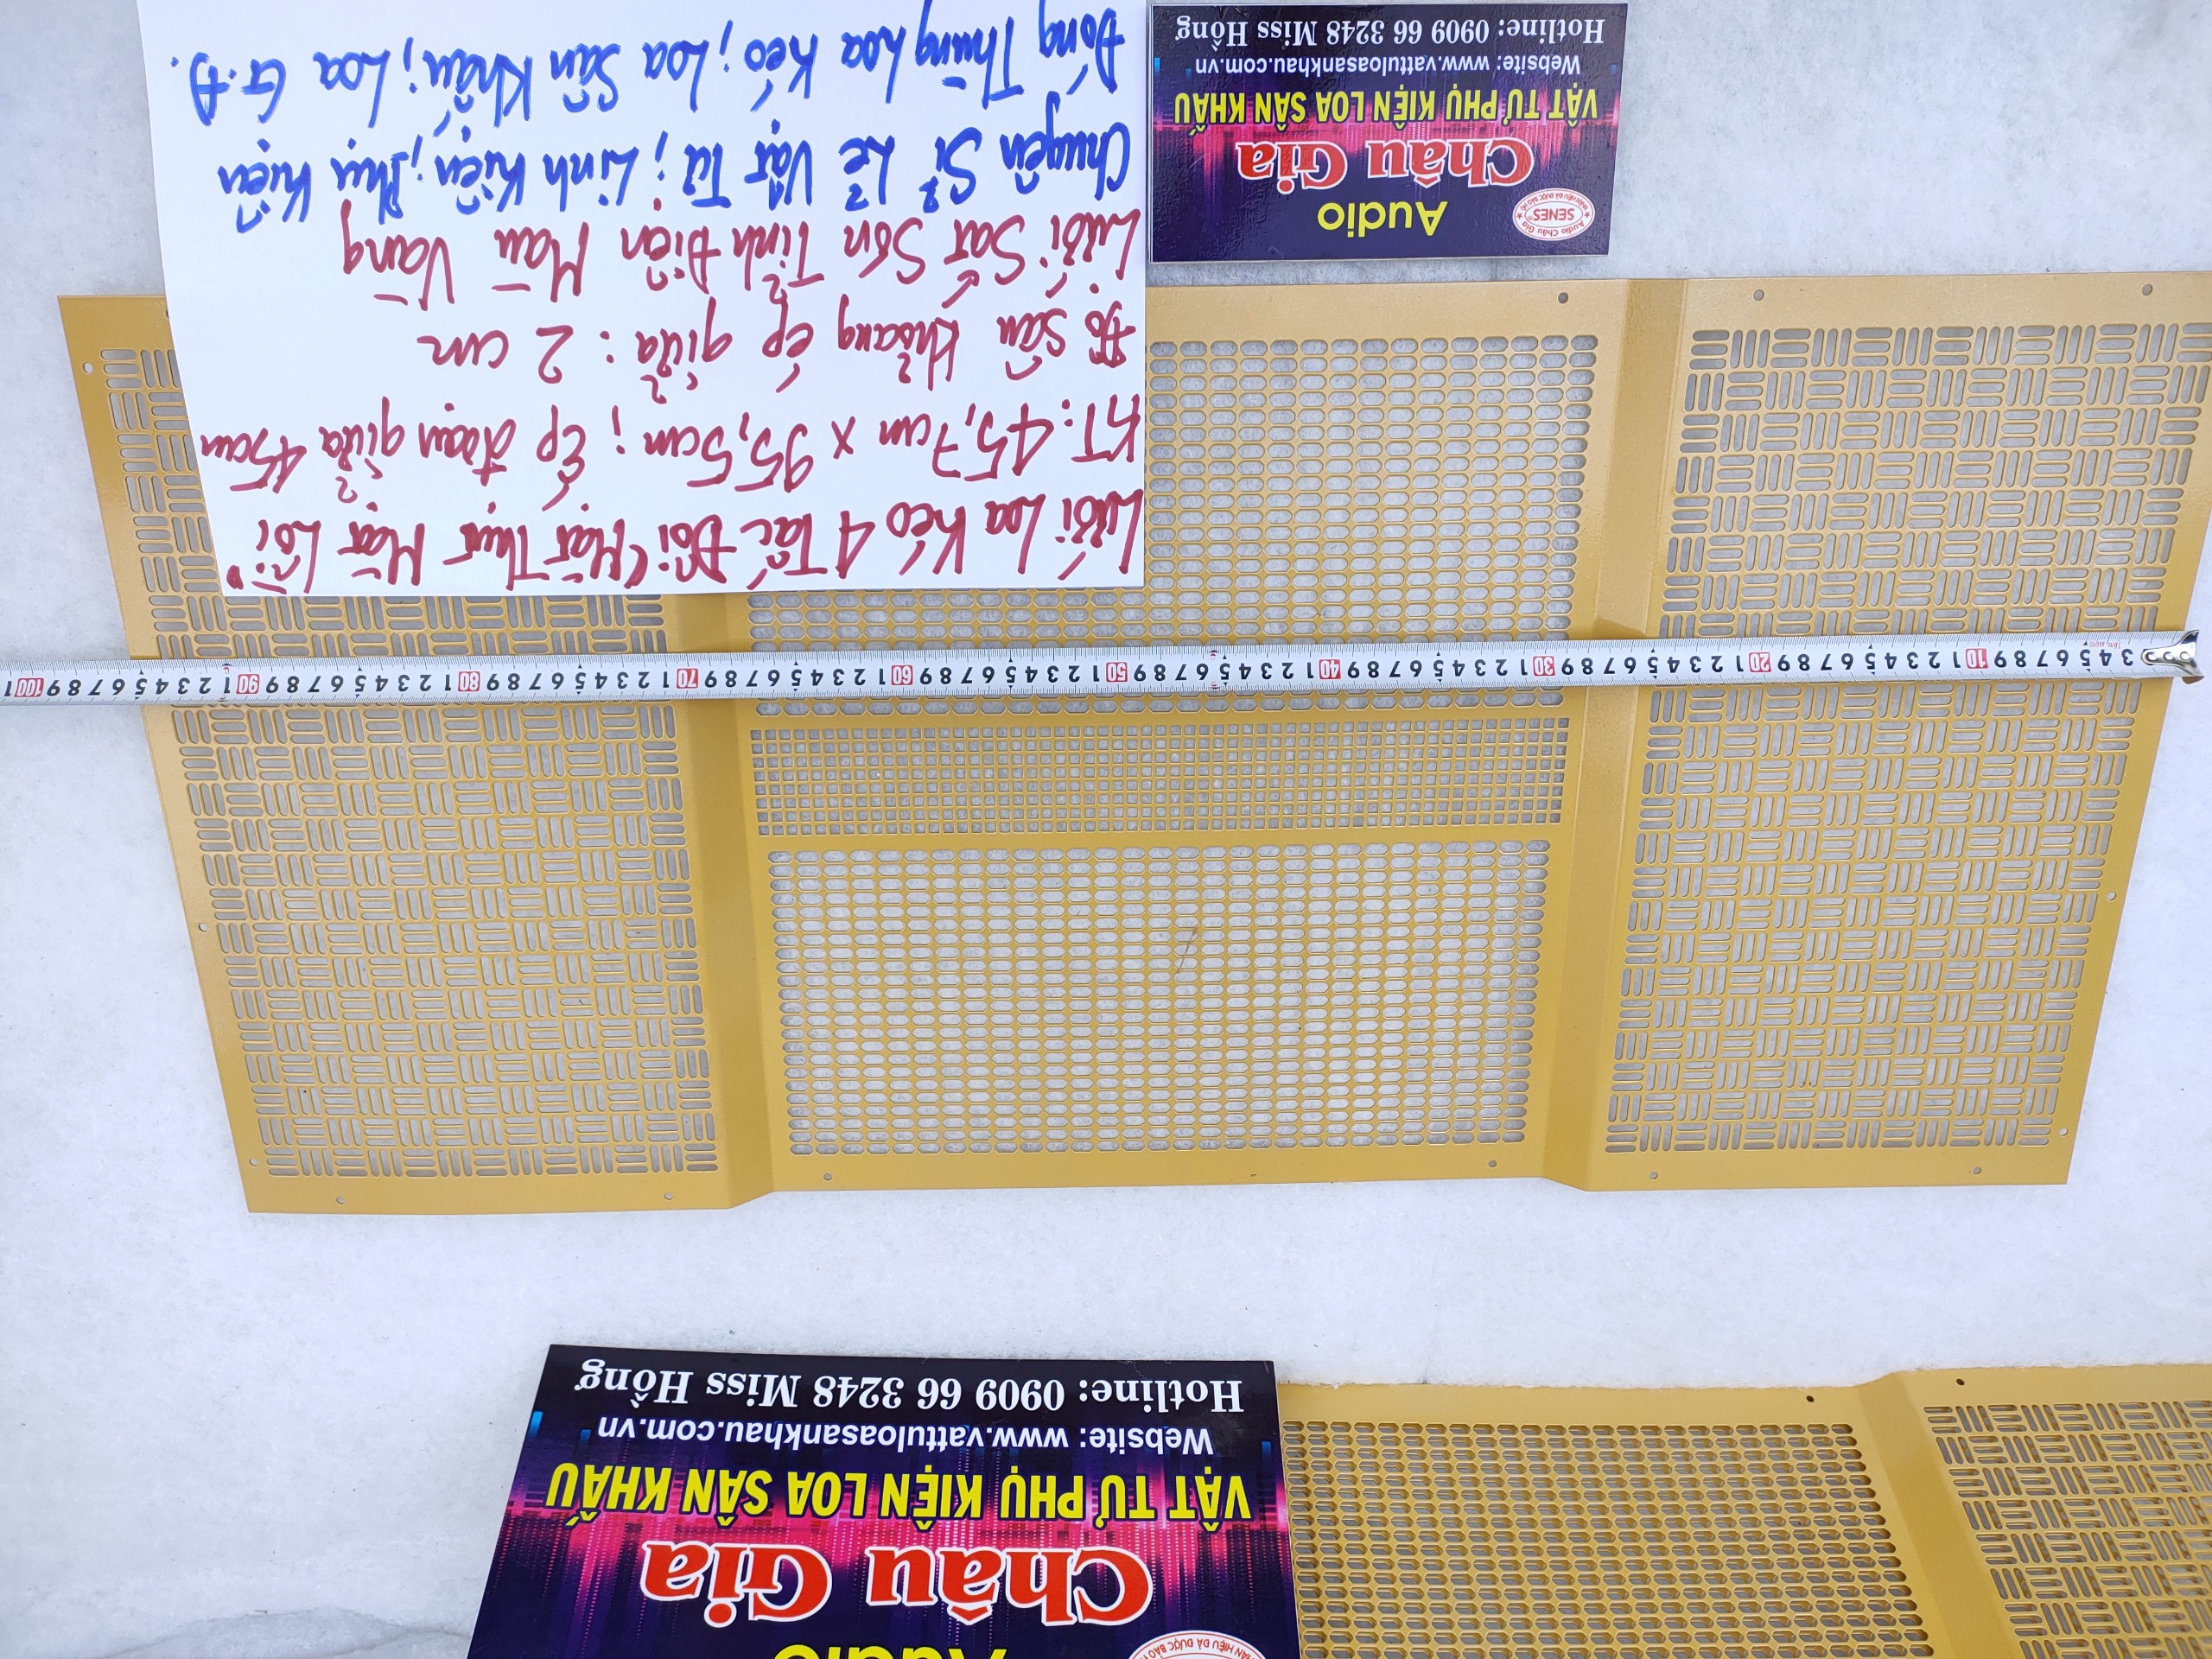 Lưới Loa Kéo 4 Tấc Đôi (Mặt Thụt Mặt Lồi)
KT: 45,7cm x 95,5cm; Ép đoạn giữa 45cm
Độ sâu khoảng ép giữa: 2 cm
Lưới Sắt Sơn Tĩnh Điện Màu Vàng
Chuyên Sỉ Lẻ Vật Tư; Linh Kiện; Phụ Kiện
Đóng Thùng Loa Kéo; Loa Sân Khấu; Loa G.Đ.
Audio Châu Gia
SENES®
NHÃN HIỆU ĐÃ ĐƯỢC BẢO HỘ
Audio
Châu Gia
VẬT TƯ PHỤ KIỆN LOA SÂN KHẤU
Website: www.vattuloasankhau.com.vn
Hotline: 0909 66 3248 Miss Hồng
3 4 5 6 7 8 9 10 1 2 3 4 5 6 7 8 9 20 1 2 3 4 5 6 7 8 9 30 1 2 3 4 5 6 7 8 9 40 1 2 3 4 5 6 7 8 9 50 1 2 3 4 5 6 7 8 9 60 1 2 3 4 5 6 7 8 9 70 1 2 3 4 5 6 7 8 9 80 1 2 3 4 5 6 7 8 9 90 1 2 3 4 5 6 7 8 9 100 1
HIỆU ĐÃ ĐƯỢC BẢO
Audio
Châu Gia
VẬT TƯ PHỤ KIỆN LOA SÂN KHẤU
Website: www.vattuloasankhau.com.vn
Hotline: 0909 66 3248 Miss Hồng